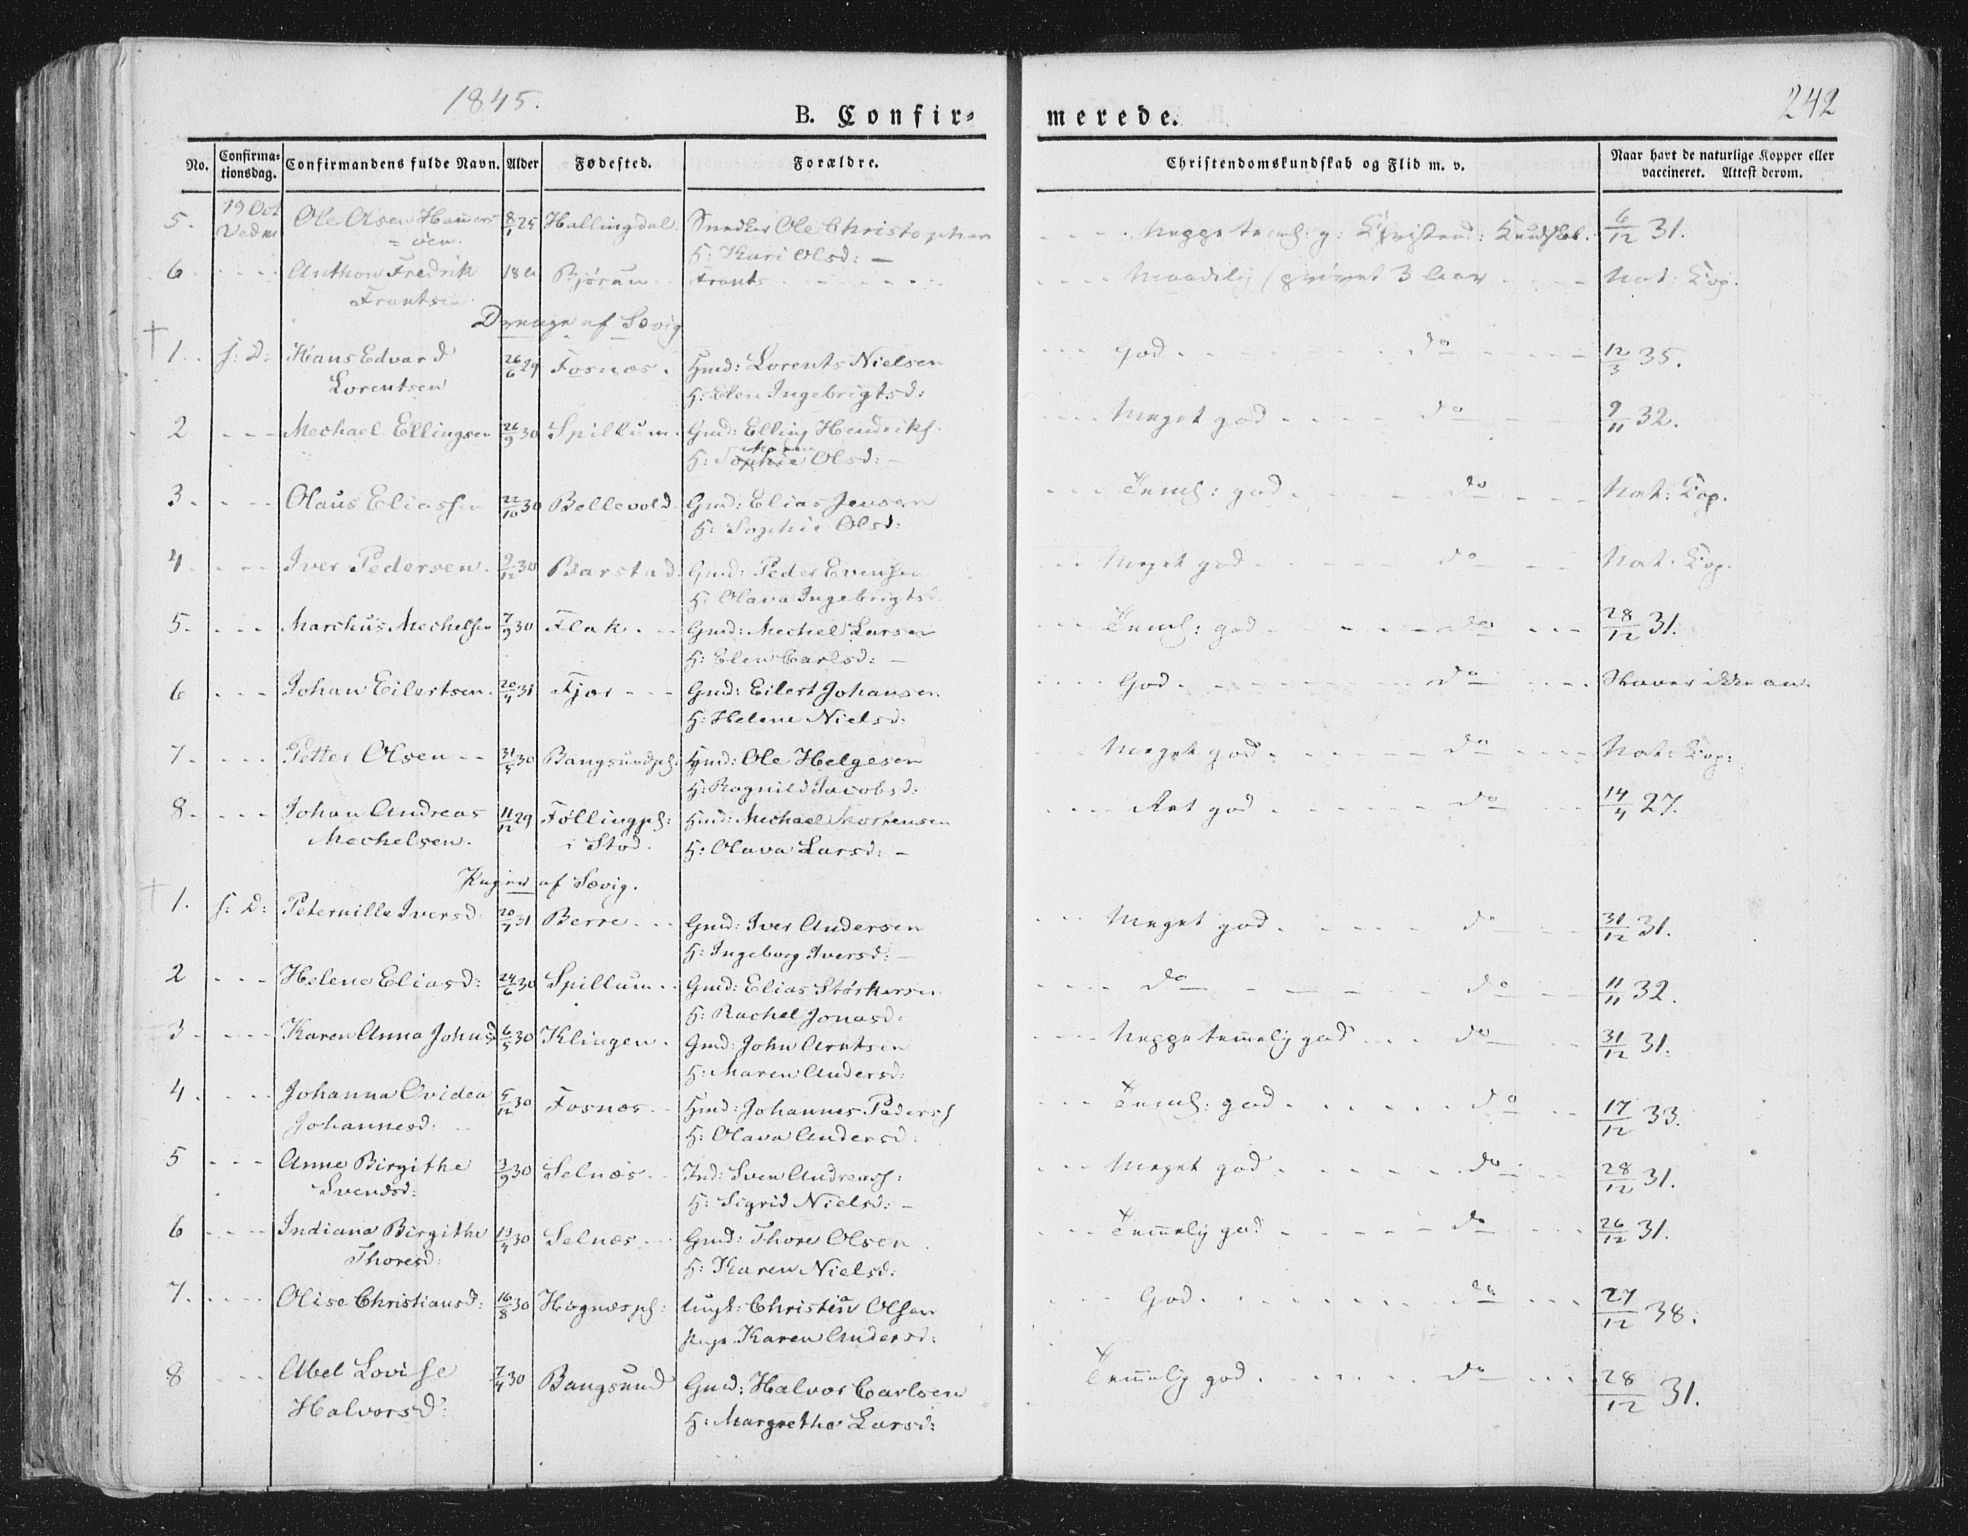 1845.
242
B. Confir-
merede.
No.
Confirma-
tionsdag.
Confirmandens fulde Navn.
Alder
Fødested.
Forældre.
Christendomskundskab og Flid m. v.
Naar havt de naturlige Kopper eller
vaccineret. Attest derom.
5. 19 Oct Ole Olsen 8/1 25 Hallingdal Snedker Ole Christophersen Neppe teml: g: Christend: Kundskab. 6/12 31.
H: Kari Olsd: –
6 Anthon Fredrik 18 Bjørum Frants Maadelig (prøvet 3 Nat: Kop.
Frantsen
Drenge af Sævig
1. s: D: Hans Edvard 26/6 29 Fosnæs. Hmd: Lorents Nielsen God do 12/3 35.
Lorentsen H: Elen Ingebrigtsd:
2 Mechael Ellingsen 26/9 30 Spillum. Gmd: Elling Hendriks. Meget god do 9/11 32.
H: Sophie Olsd: –
3 Olaus Eliassen 22/10 30 Bellevold Gmd: Elias Jensen Teml: god do Nat: Kop.
H: Sophie Olsd:
4 Iver Pedersen. 9/12 30 Barstad Gmd: Peder Evensen Meget god do Nat: Kop.
H: Olava Ingebrigtsd
5. Marchus Mechelsen 7/9 30 Flak Gmd: Mechel Larsen Teml: god do 28/12 31.
H: Elen Carlsd: –
6 Johan Eilertsen. 20/4 31 Fjær Gmd: Eilert Johansen God do Staaer ikke an.
H: Helene Nielsd:
7 Petter Olsen 31/5 30 Bangsundpl: Hmd: Ole Helgesen Meget god do Nat: Kop:
H: Ragnild Jacobsd:
8. Johan Andreas 11/12 29 Føllingpl: Hmd: Michael Mortensen Ret god do 14/4 27.
Mechelsen. i Stod. H: Olava Larsd: –
Piger af Sævig.
1. s: D: Peternille Iversd 20/4 31 Berre Gmd: Iver Andersen Meget god do 31/12 31.
H: Ingeborg Iversd: –
2 Helene Eliasd: 24/6 30 Spillum Gmd: Elias Størkersen do do 11/11 32.
H: Rachel Jonasd:
3 Karen Anna Johnsd 6/5 30 Klingen. Gmd: John Arntsen Neppe temmelig god do 31/12 31.
H: Maren Andersd:
4 Johanna Ovidea 5/12 30 Fosnæs Hmd: Johannes Peders. Teml: god do 17/12 33.
Johannesd: H: Olava Andersd.
5 Anne Birgithe 3/9 30 Selnæs Ind: Sven Andreass: Meget god do 28/12 31.
Svendsd: H: Sigrid Nielsd: –
6 Indiana Birgithe 13/4 30 Selnæs Gmd: Thore Olsen Temmelig god do 26/12 31.
Thoresd: H: Karen Nielsd:
7. Olise Christiansd: 16/8 30 Høgnæspl: Ungk: Christian Olsen God do 27/12 38.
Pige Karen Andersd:
8 Abel Lovise 7/4 30 Bangsund Gmd: Halvor Carlsen Temmelig god do 28/12 31.
Halvorsd: H: Margrethe Larsd: